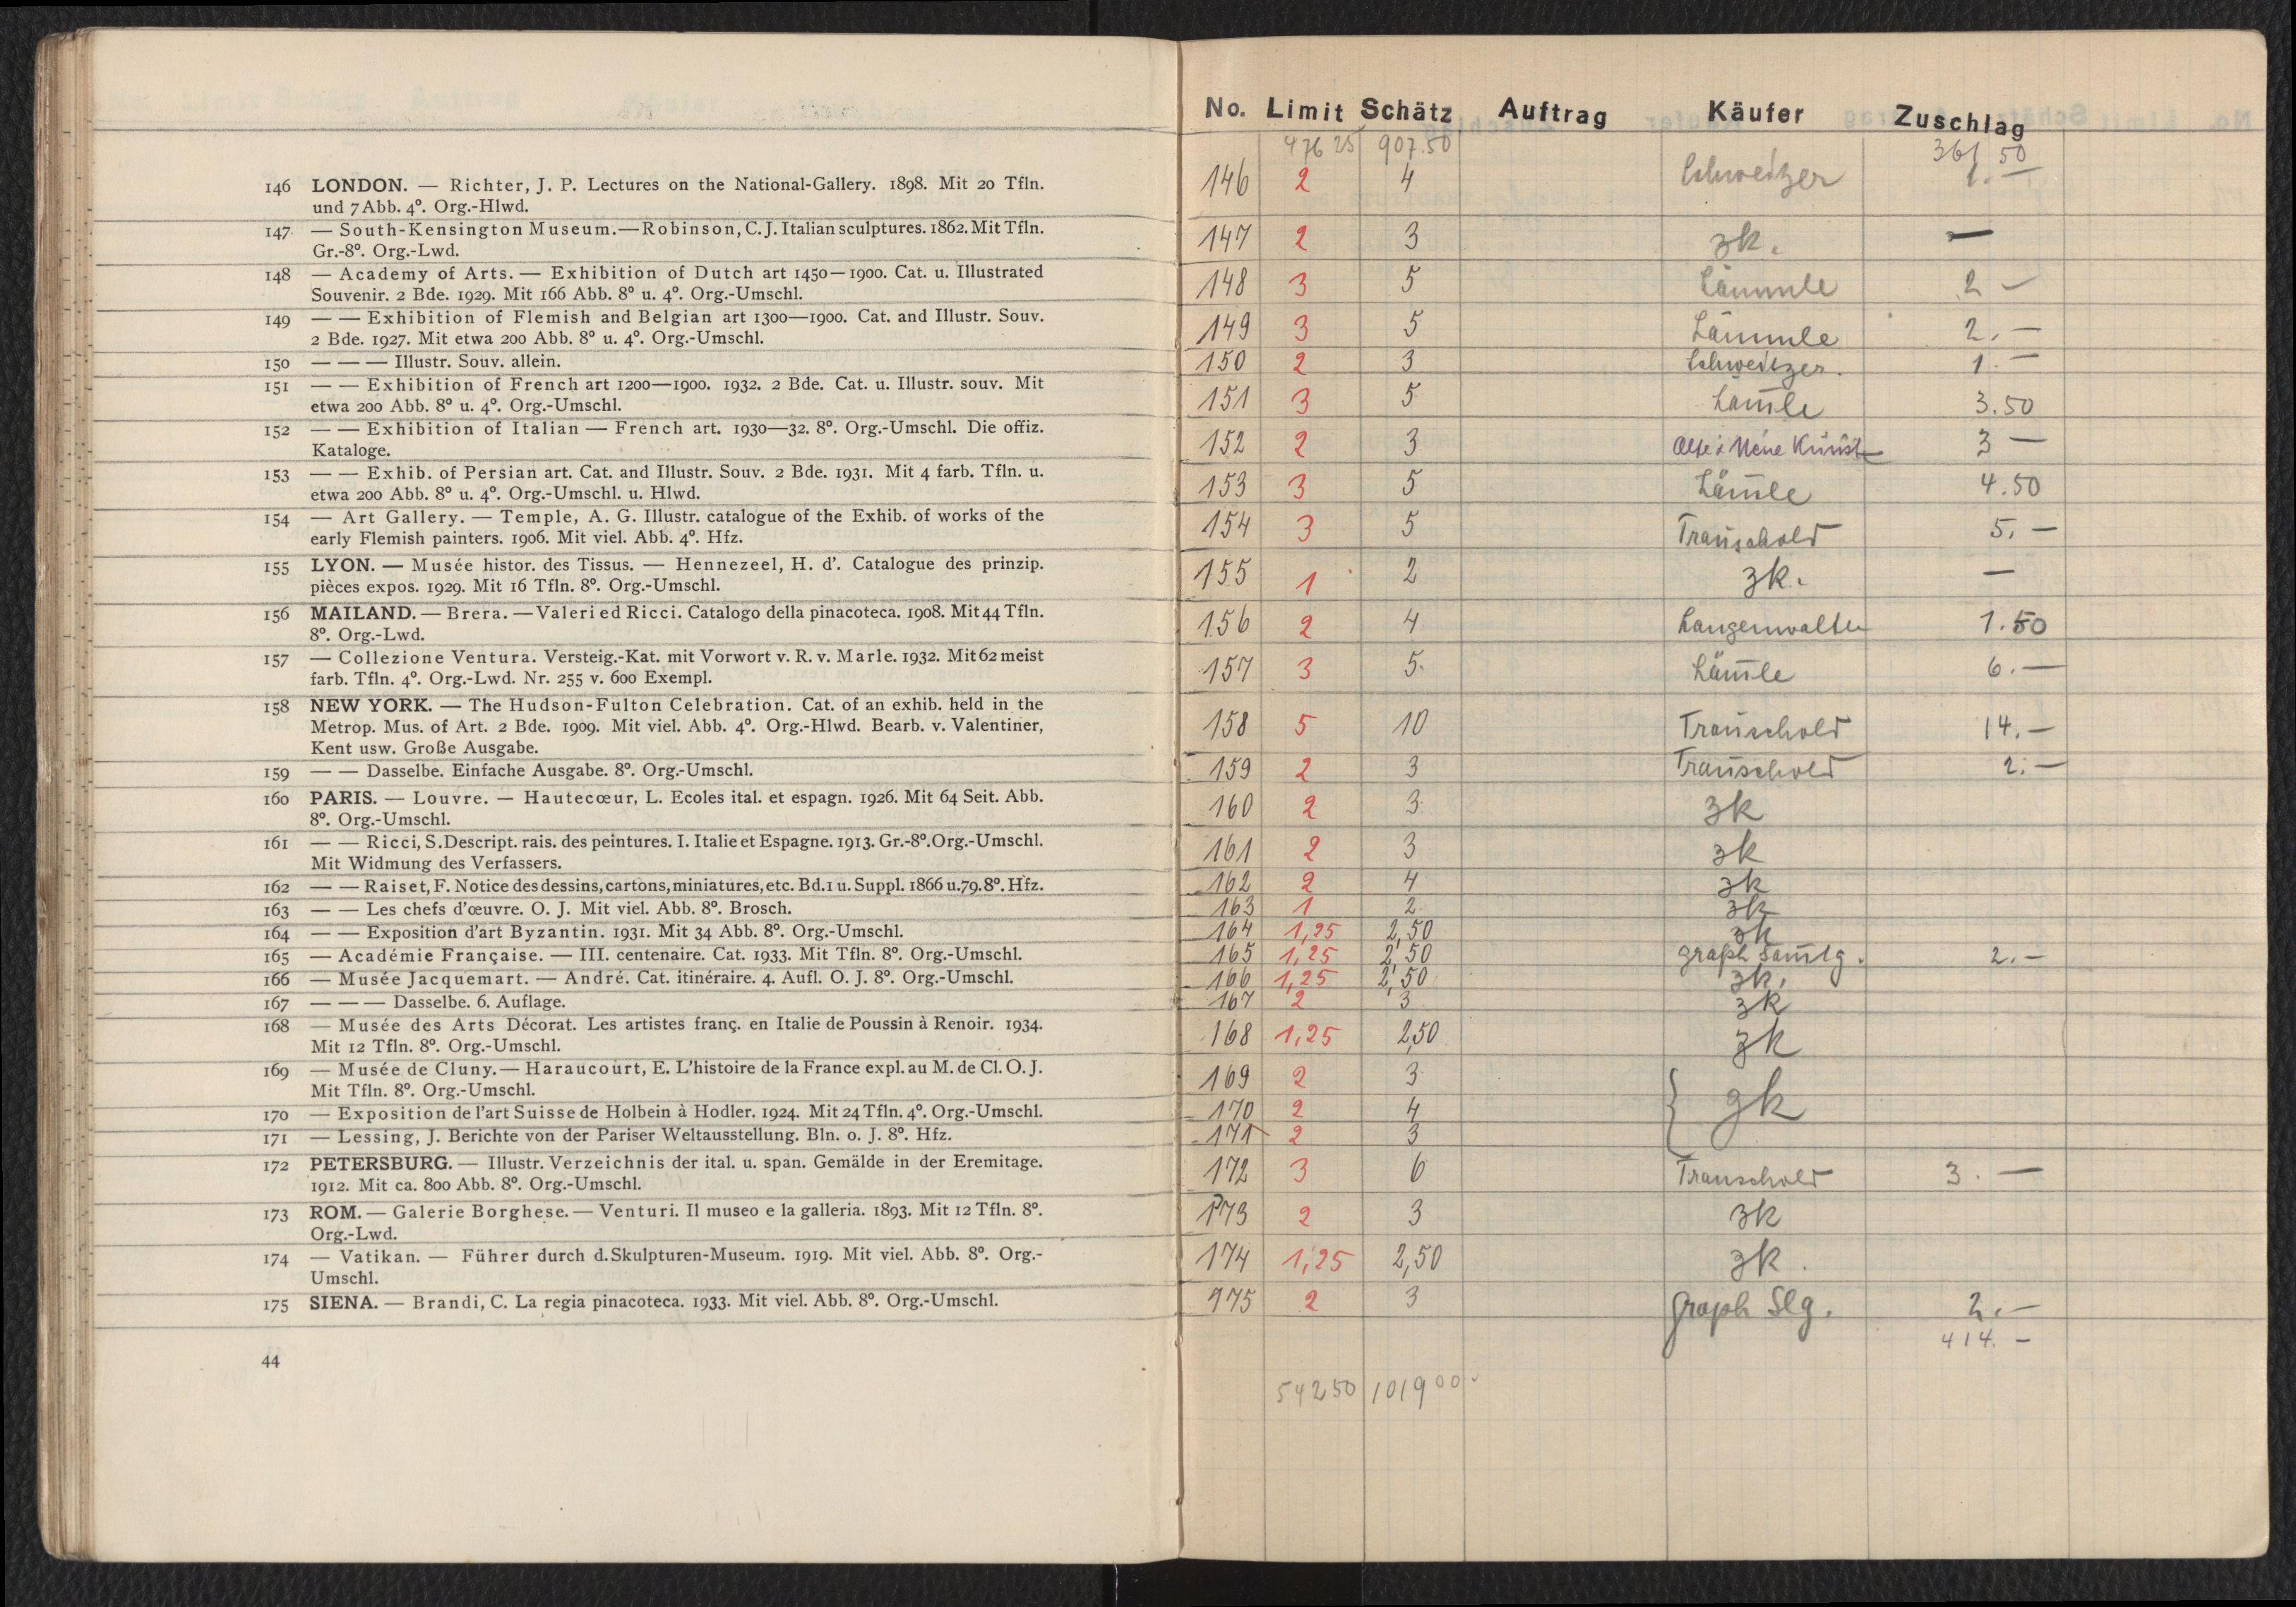 146 LONDON. — Richter, J. P. Lectures on the National-Gallery. 1898. Mit 20 Tfln.
und 7 Abb. 4°. Org.-Hlwd.
147 — South-Kensington Museum. — Robinson, C. J. Italian sculptures. 1862. Mit Tfln.
Gr.-8°. Org.-Lwd.
148 — Academy of Arts. — Exhibition of Dutch art 1450—1900. Cat. u. Illustrated
Souvenir. 2 Bde. 1929. Mit 166 Abb. 8° u. 4°. Org.-Umschl.
149 — — Exhibition of Flemish and Belgian art 1300—1900. Cat. and Illustr. Souv.
2 Bde. 1927. Mit etwa 200 Abb. 8° u. 4°. Org.-Umschl.
150 — — — Illustr. Souv. allein.
151 — — Exhibition of French art 1200—1900. 1932. 2 Bde. Cat. u. Illustr. souv. Mit
etwa 200 Abb. 8° u. 4°. Org.-Umschl.
152 — — Exhibition of Italian — French art. 1930—32. 8°. Org.-Umschl. Die offiz.
Kataloge.
153 — — Exhib. of Persian art. Cat. and Illustr. Souv. 2 Bde. 1931. Mit 4 farb. Tfln. u.
etwa 200 Abb. 8° u. 4°. Org.-Umschl. u. Hlwd.
154 — Art Gallery. — Temple, A. G. Illustr. catalogue of the Exhib. of works of the
early Flemish painters. 1906. Mit viel. Abb. 4°. Hfz.
155 LYON. — Musée histor. des Tissus. — Hennezeel, H. d'. Catalogue des prinzip.
pièces expos. 1929. Mit 16 Tfln. 8°. Org.-Umschl.
156 MAILAND. — Brera. — Valeri ed Ricci. Catalogo della pinacoteca. 1908. Mit 44 Tfln.
8°. Org.-Lwd.
157 — Collezione Ventura. Versteig.-Kat. mit Vorwort v. R. v. Marle. 1932. Mit 62 meist
farb. Tfln. 4°. Org.-Lwd. Nr. 255 v. 600 Exempl.
158 NEW YORK. — The Hudson-Fulton Celebration. Cat. of an exhib. held in the
Metrop. Mus. of Art. 2 Bde. 1909. Mit viel. Abb. 4°. Org.-Hlwd. Bearb. v. Valentiner,
Kent usw. Große Ausgabe.
159 — — Dasselbe. Einfache Ausgabe. 8°. Org.-Umschl.
160 PARIS. — Louvre. — Hautecœur, L. Ecoles ital. et espagn. 1926. Mit 64 Seit. Abb.
8°. Org.-Umschl.
161 — — Ricci, S. Descript. rais. des peintures. I. Italie et Espagne. 1913. Gr.-8°. Org.-Umschl.
Mit Widmung des Verfassers.
162 — — Raiset, F. Notice des dessins, cartons, miniatures, etc. Bd. 1 u. Suppl. 1866 u. 79. 8°. Hfz.
163 — — Les chefs d'œuvre. O. J. Mit viel. Abb. 8°. Brosch.
164 — — Exposition d'art Byzantin. 1931. Mit 34 Abb. 8°. Org.-Umschl.
165 — Académie Française. — III. centenaire. Cat. 1933. Mit Tfln. 8°. Org.-Umschl.
166 — Musée Jacquemart. — André. Cat. itinéraire. 4. Aufl. O. J. 8°. Org.-Umschl.
167 — — — Dasselbe. 6. Auflage.
168 — Musée des Arts Décorat. Les artistes franç. en Italie de Poussin à Renoir. 1934.
Mit 12 Tfln. 8°. Org.-Umschl.
169 — Musée de Cluny. — Haraucourt, E. L'histoire de la France expl. au M. de Cl. O. J.
Mit Tfln. 8°. Org.-Umschl.
170 — Exposition de l'art Suisse de Holbein à Hodler. 1924. Mit 24 Tfln. 4°. Org.-Umschl.
171 — Lessing, J. Berichte von der Pariser Weltausstellung. Bln. o. J. 8°. Hfz.
172 PETERSBURG. — Illustr. Verzeichnis der ital. u. span. Gemälde in der Eremitage.
1912. Mit ca. 800 Abb. 8°. Org.-Umschl.
173 ROM. — Galerie Borghese. — Venturi. Il museo e la galleria. 1893. Mit 12 Tfln. 8°.
Org.-Lwd.
174 — Vatikan. — Führer durch d. Skulpturen-Museum. 1919. Mit viel. Abb. 8°. Org.-
Umschl.
175 SIENA. — Brandi, C. La regia pinacoteca. 1933. Mit viel. Abb. 8°. Org.-Umschl.
44
No. Limit Schätz Auftrag Käufer Zuschlag
476 25 907.50 361 50
146 2 4 Schweitzer 1.—
147 2 3 zk. —
148 3 5 Lämmle 2 —
149 3 5 Lämmle 2.—
150 2 3 Schweitzer. 1.—
151 3 5 Läm̄le 3.50
152 2 3 Alte & Neue Kunst 3 —
153 3 5 Läm̄le 4.50
154 3 5 Trauschold 5.—
155 1 2 zk. —
156 2 4 Langenwalter 1.50
157 3 5. Läm̄le 6.—
158 5 10 Trauschold 14.—
159 2 3 Trauschold 2.—
160 2 3 zk
161 2 3 zk
162 2 4 zk
163 1 2 zk
164 1,25 2,50 zk
165 1,25 2,50 graph Sam̄lg. 2.—
166 1,25 2,50 zk.
167 2 3 zk
168 1,25 2,50 zk
169 2 3
170 2 4 zk
171 2 3
172 3 6 Trauschold 3.—
173 2 3 zk
174 1,25 2,50 zk.
175 2 3 Graph Slg. 2.—
414.—
542 50 1019 00.